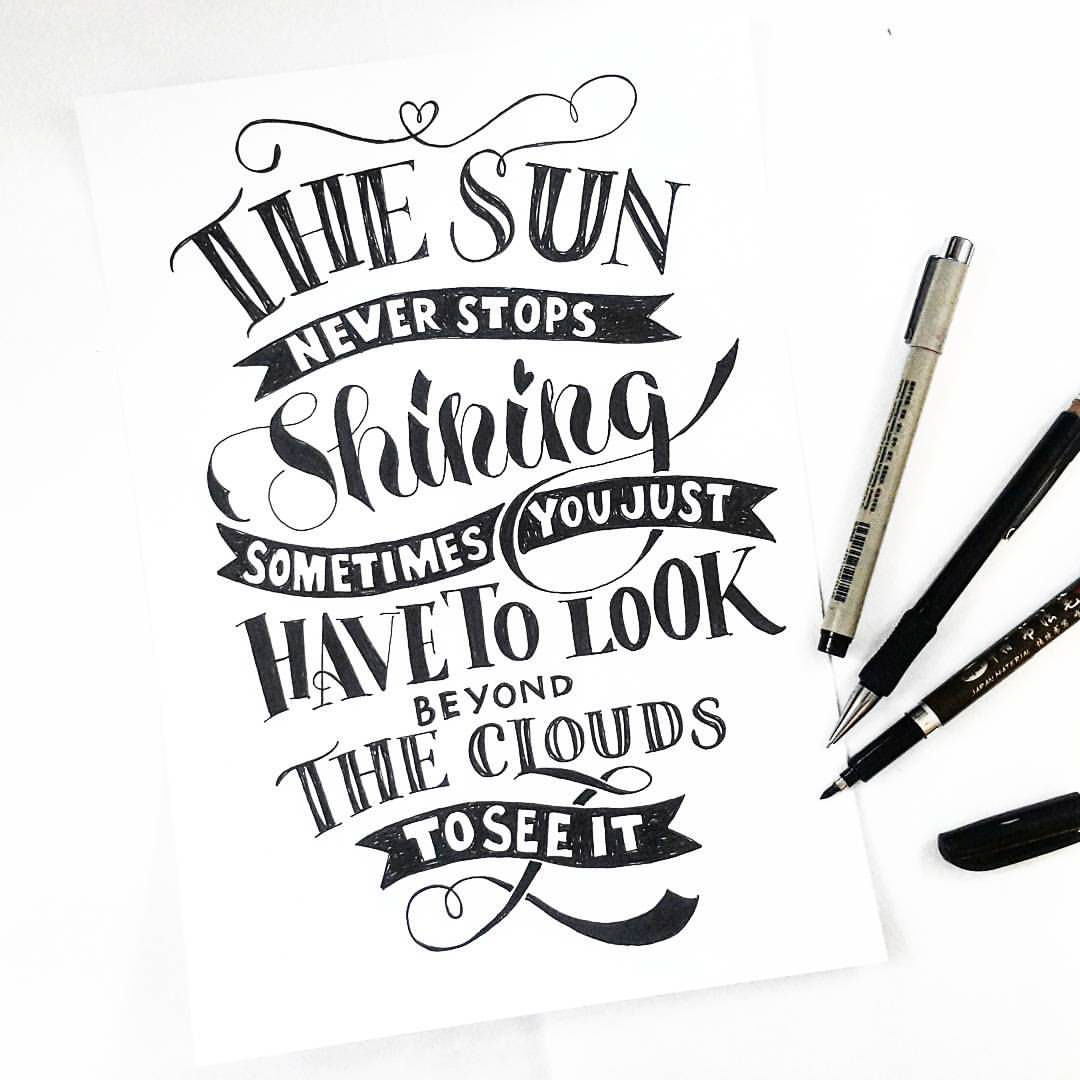 THE SUN
NEVER STOPS
Shining
SOMETIMES YOU JUST
HAVE TO LOOK
BEYOND
THE CLOUDS
TO SEE IT
JAPAN MATERIAL